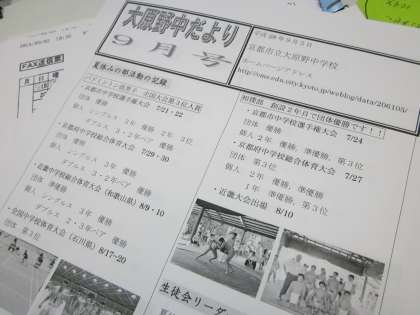 大原野中だより
9月号
平成24年9月5日
京都市立大原野中学校
ホームページアドレス
FAX送信票
夏休みの部活動の記録
バドミントン部男子 全国大会第3位入賞
・京都市中学校選手権大会 7/21・22
団体 優勝
個人 シングルス 3年 優勝 2年 3位
ダブルス 3・2年ペア 優勝
・京都府中学校総合体育大会 7/29・30
団体 優勝
個人 シングルス 3年 優勝
ダブルス 2・3年ペア 優勝
・近畿中学校総合体育大会(和歌山県) 8/9・10
個人 シングルス 3年 優勝
ダブルス 2・3年ペア 優勝
・全国中学校体育大会(石川県) 8/17-20
団体 第3位
相撲部 創設2年目で団体優勝です!!
・京都市中学校選手権大会 7/24
団体 優勝
個人 2年 優勝、準優勝、第3位
・京都府中学校総合体育大会 7/27
団体 第3位
個人 2年 優勝、準優勝
1年 準優勝、第3位
・近畿大会出場 8/10
生徒会リーダー